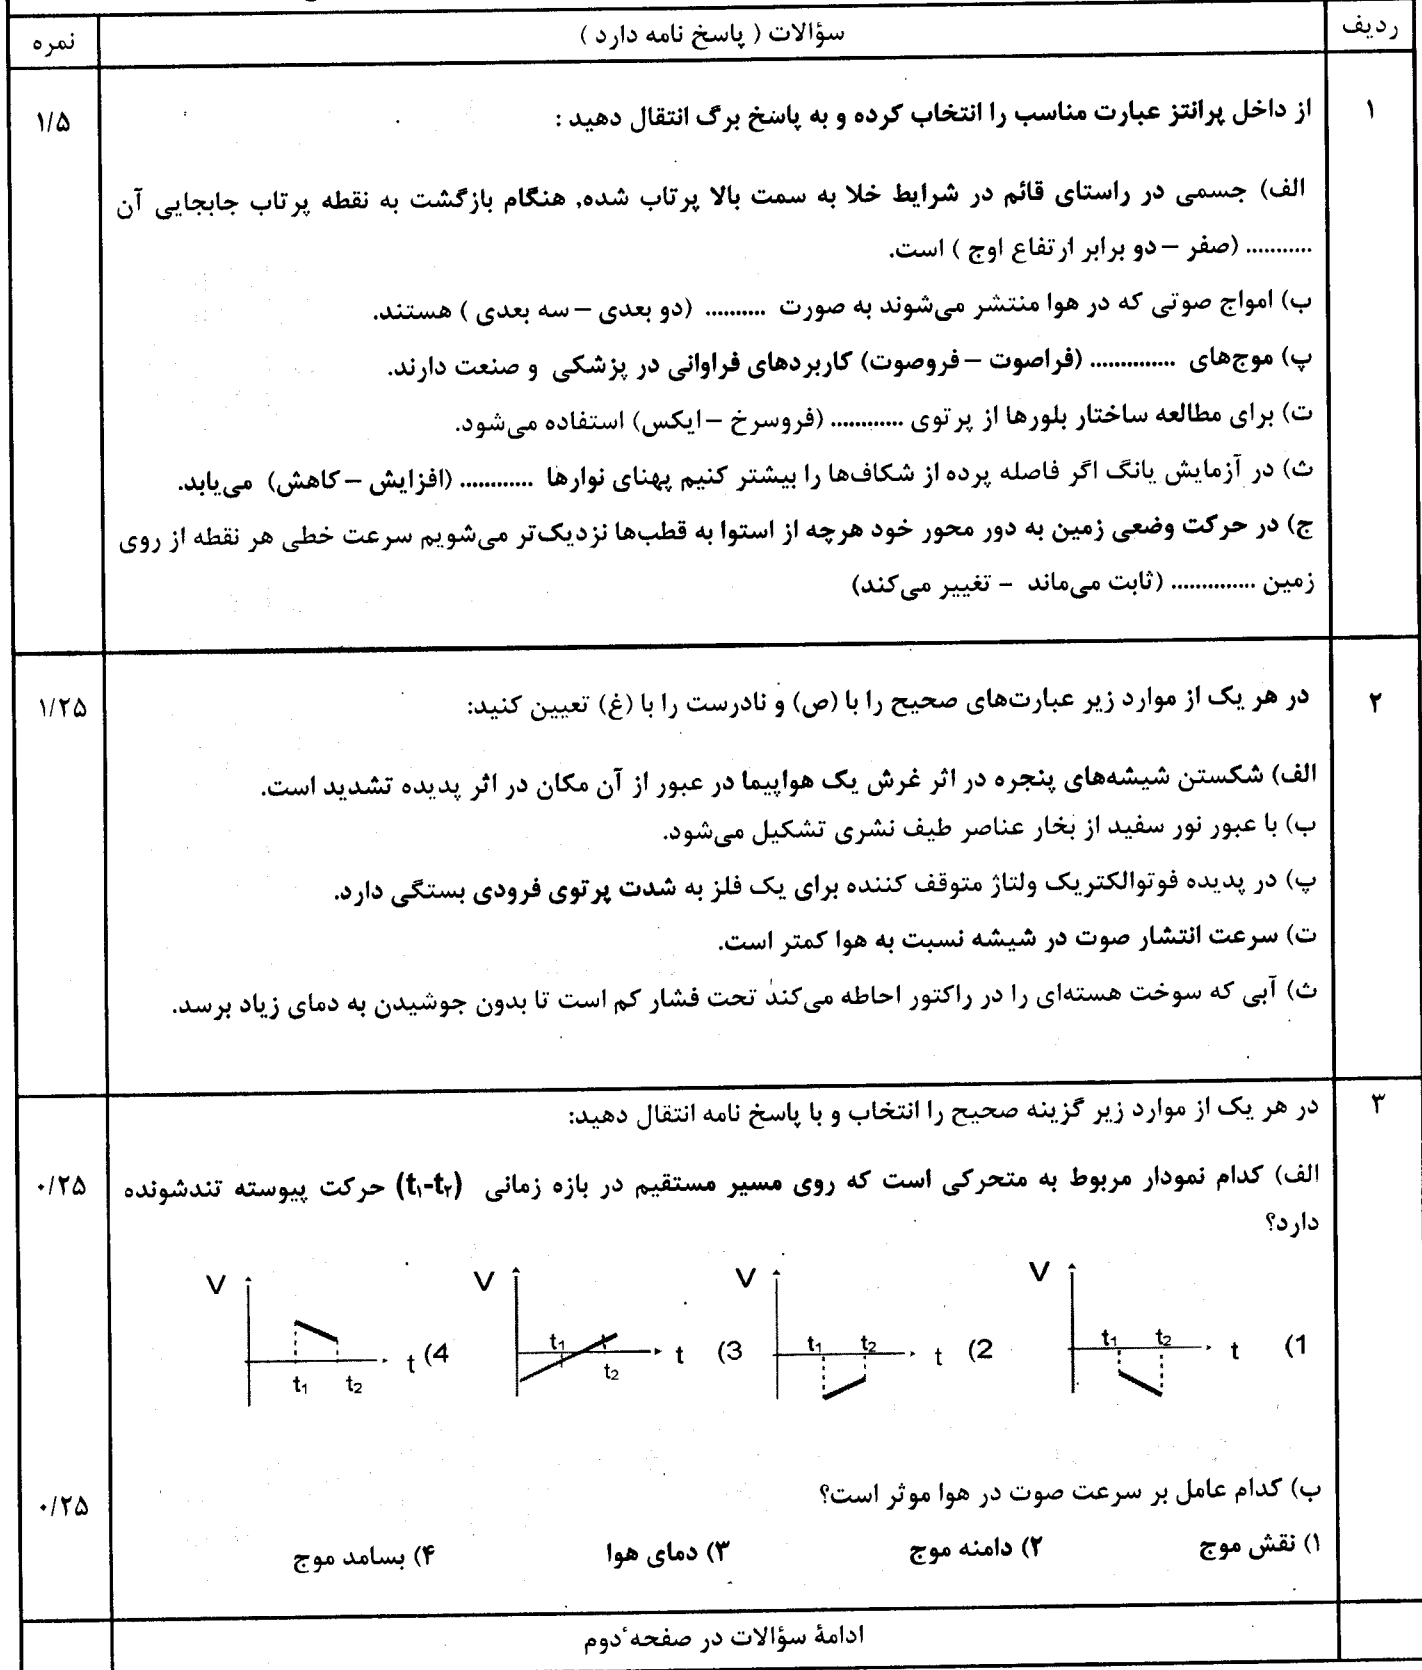 ردیف سؤالات ( پاسخ نامه دارد ) نمره
۱ از داخل پرانتز عبارت مناسب را انتخاب کرده و به پاسخ برگ انتقال دهید : ۱/۵
الف) جسمی در راستای قائم در شرایط خلا به سمت بالا پرتاب شده, هنگام بازگشت به نقطه پرتاب جابجایی آن
........... (صفر – دو برابر ارتفاع اوج ) است.
ب) امواج صوتی که در هوا منتشر می‌شوند به صورت .......... (دو بعدی – سه بعدی ) هستند.
پ) موج‌های .............. (فراصوت – فروصوت) کاربردهای فراوانی در پزشکی و صنعت دارند.
ت) برای مطالعه ساختار بلورها از پرتوی ............ (فروسرخ – ایکس) استفاده می‌شود.
ث) در آزمایش یانگ اگر فاصله پرده از شکاف‌ها را بیشتر کنیم پهنای نوارها ............ (افزایش – کاهش) می‌یابد.
ج) در حرکت وضعی زمین به دور محور خود هرچه از استوا به قطب‌ها نزدیک‌تر می‌شویم سرعت خطی هر نقطه از روی
زمین .............. (ثابت می‌ماند - تغییر می‌کند)
۲ در هر یک از موارد زیر عبارت‌های صحیح را با (ص) و نادرست را با (غ) تعیین کنید: ۱/۲۵
الف) شکستن شیشه‌های پنجره در اثر غرش یک هواپیما در عبور از آن مکان در اثر پدیده تشدید است.
ب) با عبور نور سفید از بخار عناصر طیف نشری تشکیل می‌شود.
پ) در پدیده فوتوالکتریک ولتاژ متوقف کننده برای یک فلز به شدت پرتوی فرودی بستگی دارد.
ت) سرعت انتشار صوت در شیشه نسبت به هوا کمتر است.
ث) آبی که سوخت هسته‌ای را در راکتور احاطه می‌کند تحت فشار کم است تا بدون جوشیدن به دمای زیاد برسد.
۳ در هر یک از موارد زیر گزینه صحیح را انتخاب و با پاسخ نامه انتقال دهید:
الف) کدام نمودار مربوط به متحرکی است که روی مسیر مستقیم در بازه زمانی (t₁-t₂) حرکت پیوسته تندشونده ۰/۲۵
دارد؟
1) V t₁ t₂ t
2) V t₁ t₂ t
3) V t₁ t t₂ t
4) V t₁ t₂ t
ب) کدام عامل بر سرعت صوت در هوا موثر است؟ ۰/۲۵
۱) نقش موج ۲) دامنه موج ۳) دمای هوا ۴) بسامد موج
ادامهٔ سؤالات در صفحه ٔدوم